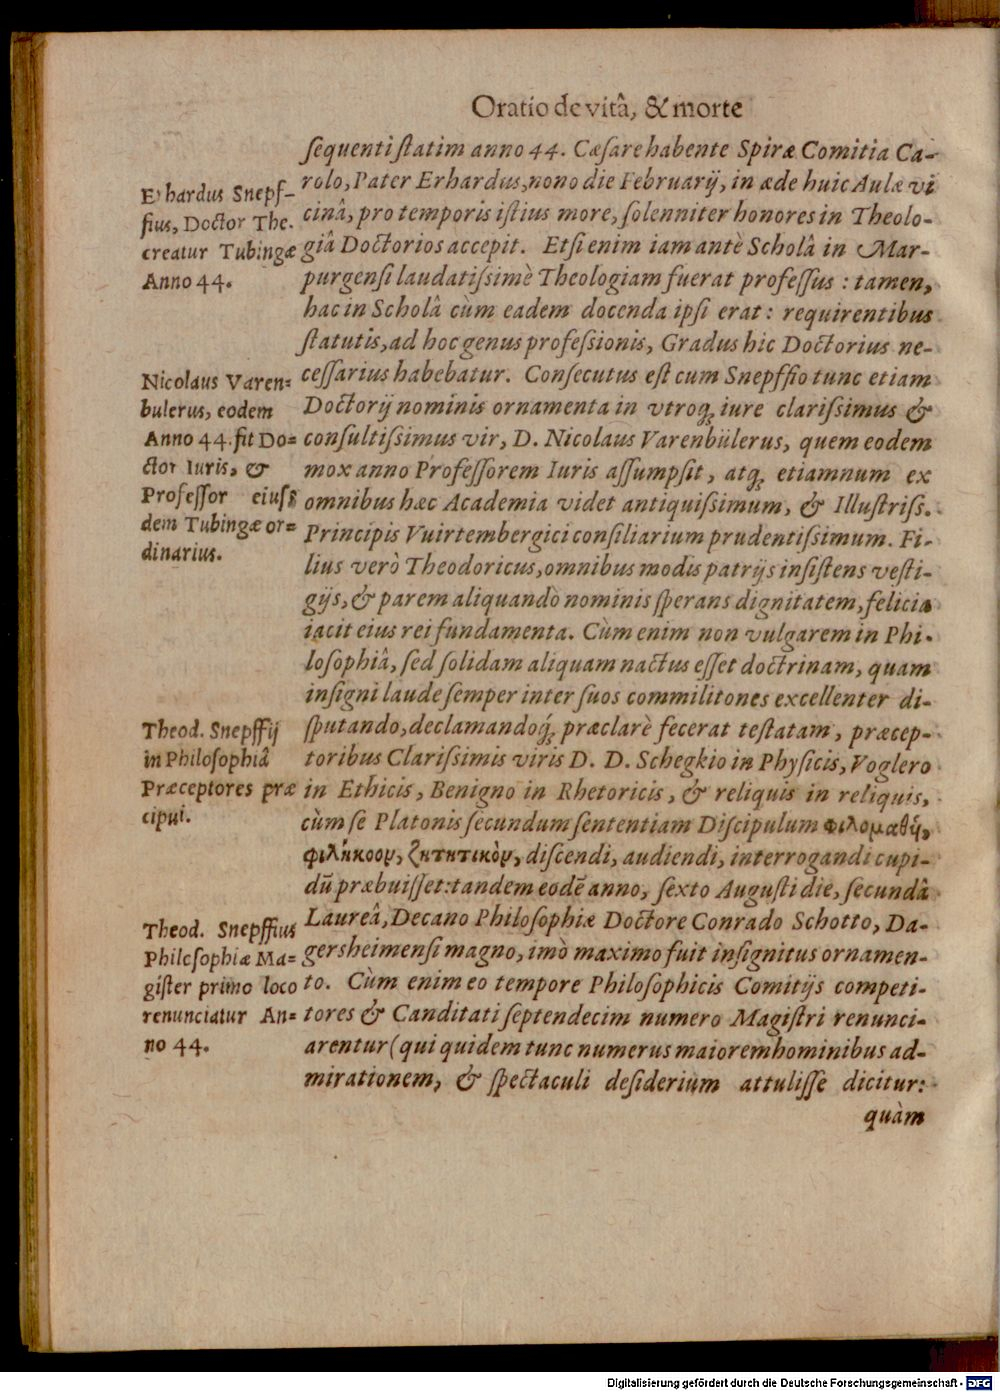 Oratio de vitâ, & morte
sequenti statim anno 44. Cæsare habente Spiræ Comitia Ca-
rolo, Pater Erhardus, nono die Februarij, in æde huic Aulæ vi
cinâ, pro temporis istius more, solenniter honores in Theolo-
giâ Doctorios accepit. Etsi enim iam antè Scholâ in Mar-
purgensi laudatissimè Theologiam fuerat professus: tamen,
hac in Scholâ cùm eadem docenda ipsi erat: requirentibus
statutis, ad hoc genus professionis, Gradus hic Doctorius ne-
cessarius habebatur. Consecutus est cum Snepffio tunc etiam
Doctorij nominis ornamenta in vtroq́; iure clarissimus &
consultissimus vir, D. Nicolaus Varenbülerus, quem eodem
mox anno Professorem Iuris assumpsit, atq́; etiamnum ex
omnibus hæc Academia videt antiquissimum, & Illustriss.
Principis Vuirtembergici consiliarium prudentissimum. Fi-
lius verò Theodoricus, omnibus modis patrijs insistens vesti-
gijs, & parem aliquando nominis sperans dignitatem, felicia
iacit eius rei fundamenta. Cùm enim non vulgarem in Phi-
losophiâ, sed solidam aliquam nactus esset doctrinam, quam
insigni laude semper inter suos commilitones excellenter di-
sputando, declamandoq́; præclarè fecerat testatam, præcep-
toribus Clarissimis viris D. D. Schegkio in Physicis, Voglero
in Ethicis, Benigno in Rhetoricis, & reliquis in reliquis,
cùm se Platonis secundum sententiam Discipulum φιλομαθῆ,
φιλήκοον, ζητητικὸν, discendi, audiendi, interrogandi cupi-
dũ præbuisset: tandem eodẽ anno, sexto Augusti die, secundâ
Laureâ, Decano Philosophiæ Doctore Conrado Schotto, Da-
gersheimensi magno, imò maximo fuit insignitus ornamen-
to. Cùm enim eo tempore Philosophicis Comitijs competi-
tores & Canditati septendecim numero Magistri renunci-
arentur (qui quidem tunc numerus maiorem hominibus ad-
mirationem, & spectaculi desiderium attulisse dicitur:
quàm
Erhardus Snepf-
fius, Doctor The.
creatur Tubingæ
Anno 44.
Nicolaus Varen=
bulerus, eodem
Anno 44. fit Do=
ctor Iuris, &
Professor eius=
dem Tubingæ or=
dinarius.
Theod. Snepffij
in Philosophiâ
Præceptores præ
cipui.
Theod. Snepffius
Philosophiæ Ma=
gister primo loco
renunciatur An=
no 44.
Digitalisierung gefördert durch die Deutsche Forschungsgemeinschaft - DFG